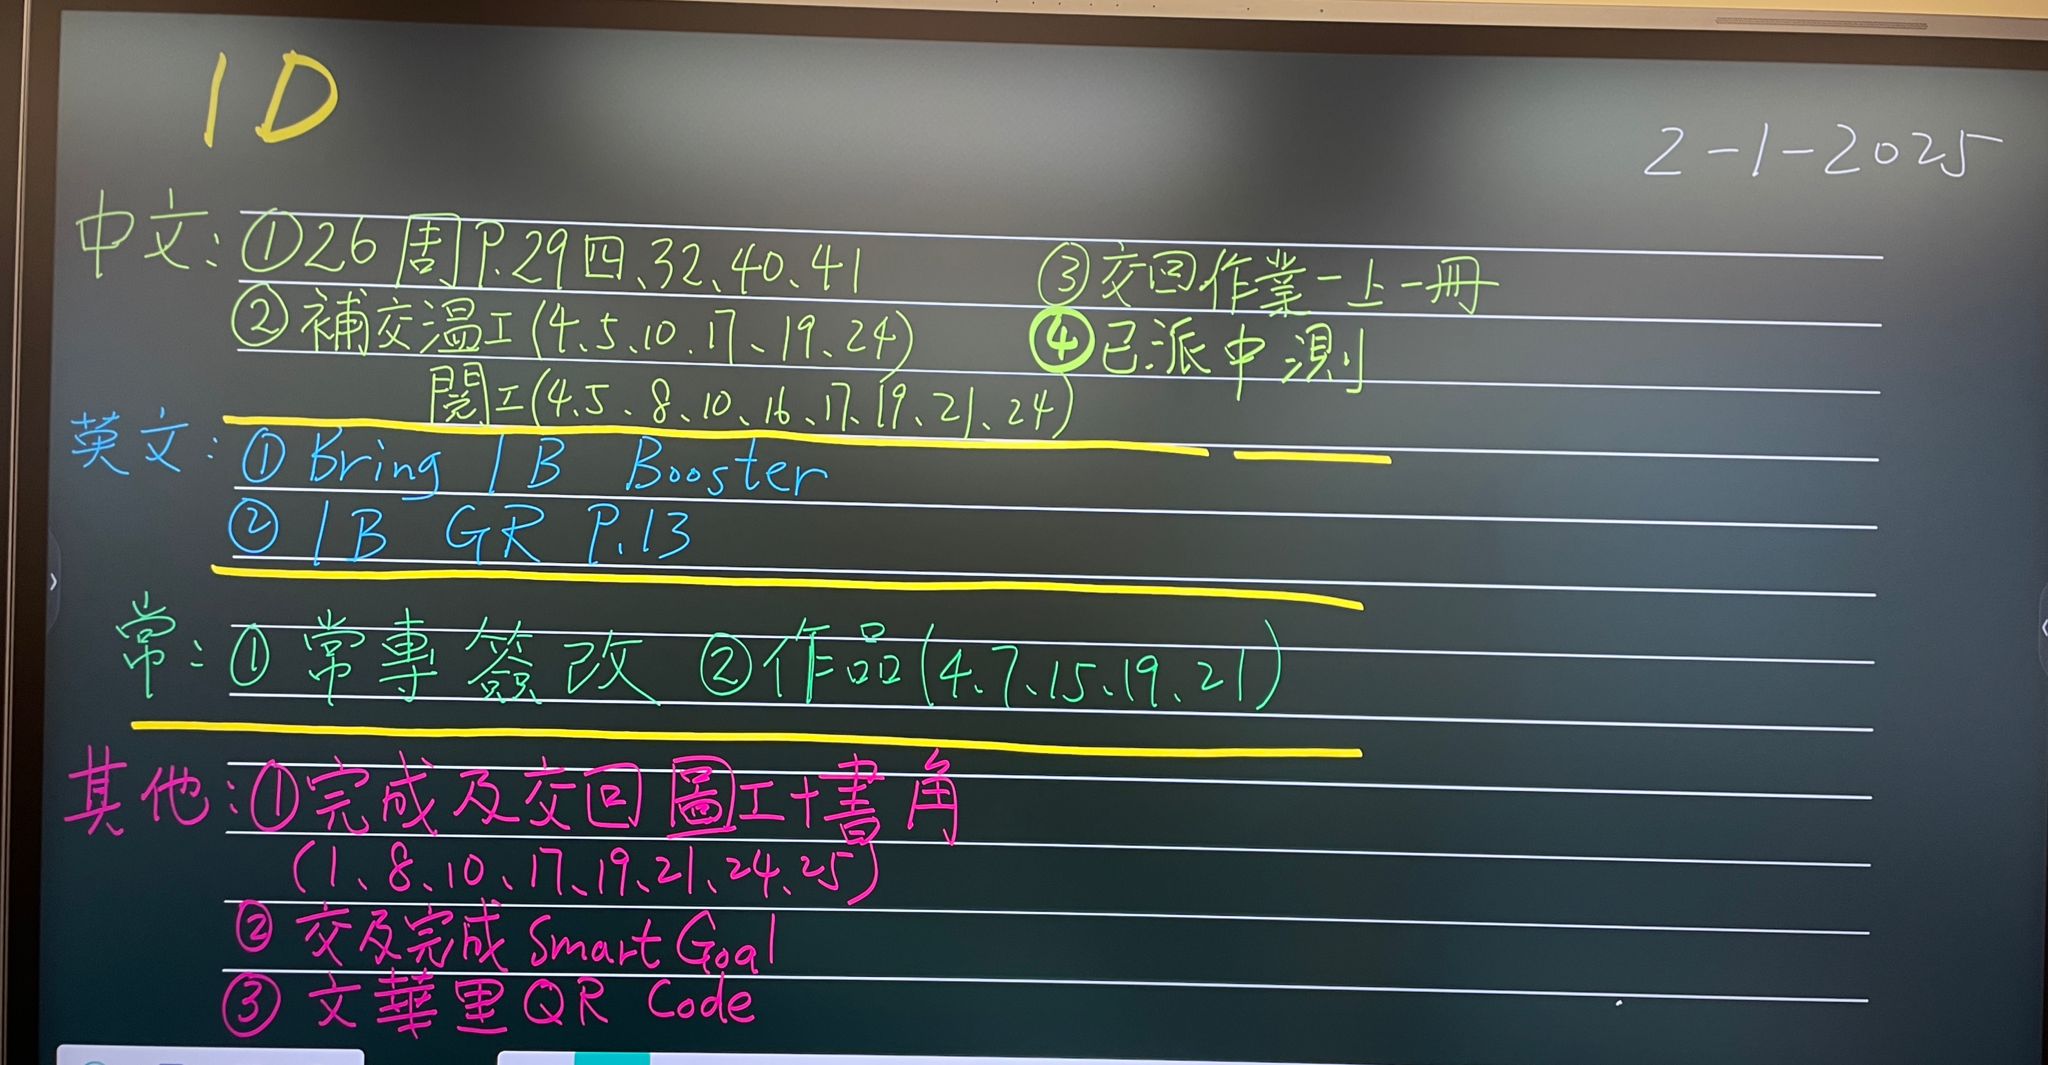 1D
2-1-2025
中文：①26周P.29四、32、40、41
②補交溫工(4、5、10、17、19、24)
閱工(4、5、8、10、16、17、19、21、24)
③交回作業一上一冊
④已派中測
英文：①Bring 1B Booster
②1B GR P.13
常：①常專簽改 ②作品(4、7、15、19、21)
其他：①完成及交回圖工+書角
(1、8、10、17、19、21、24、25)
②交及完成Smart Goal
③文華里QR Code